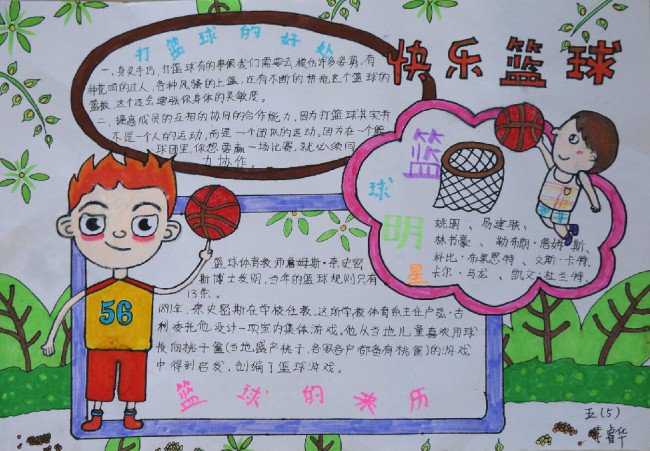 快乐篮球
打篮球的好处
一、身灵手巧,打篮球有的时候我们需要去模仿许多姿势,有
种花哨的过人,各种风骚的上篮,还有不断的拼抢这个篮球的
篮板,这个还会增强你身体的灵敏度。
二、提高成员的互相的协同的合作能力,因为打篮球其实并
不是一个人的运动,而是一个团队的运动,因为在一个篮
球团里,你想要赢一场比赛,就必须同
力协作。
篮
球
明
星
姚明、易建联、
林书豪、勒布朗·詹姆斯、
科比·布莱恩特、文斯·卡特、
卡尔·马龙、凯文·杜兰特.
56
篮球体育教师詹姆斯·奈史密
斯博士发明,当年的篮球规则只有
13条。
1891年,奈史密斯在学校任教,这所学校体育系主任卢瑟·古
利委托他设计一项室内集体游戏。他从当地儿童喜欢用球
投向桃子篮(当地盛产桃子,各家各户都备有桃篮)的游戏
中得到启发,创编了篮球游戏。
篮球的来历
五(5)
睿华